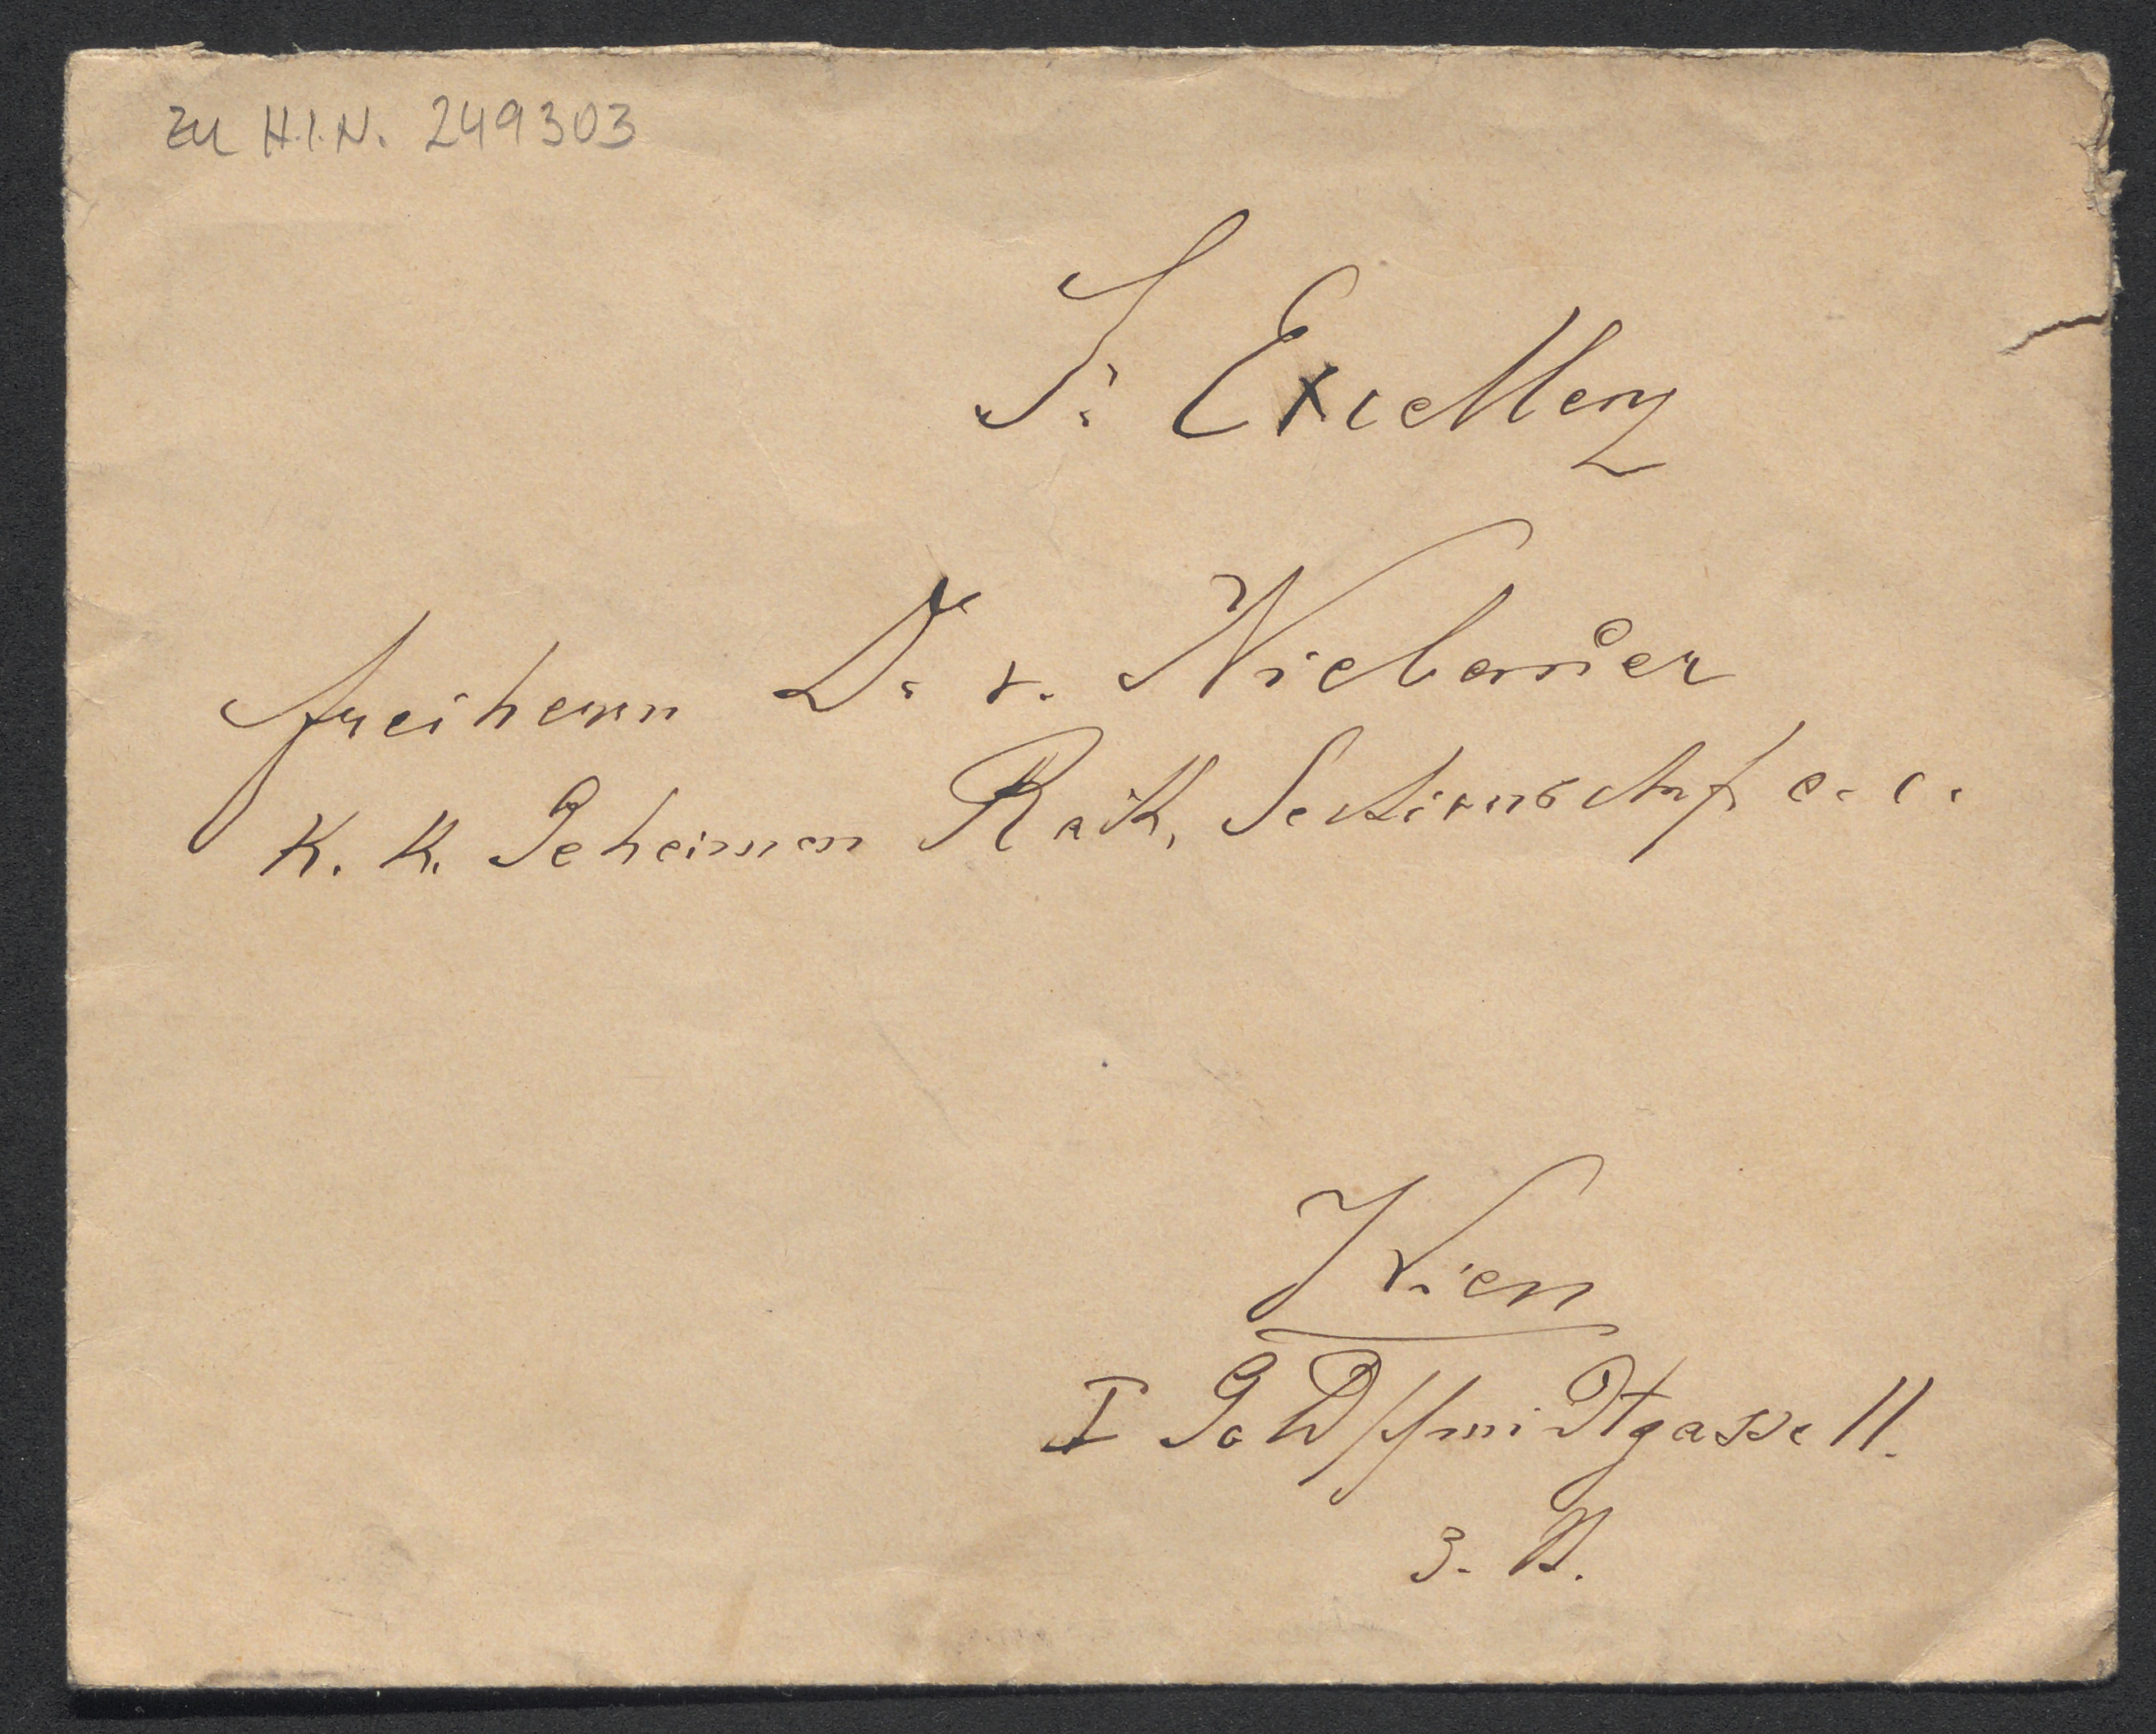 Zu H.I.N. 249303
Sr Excellenz
Freiherrn Dr v. Niebauer
K. K. Geheimen Rath, Sectionschef e. c.
Wien
I Goldschmidtgasse 11.
3. B.